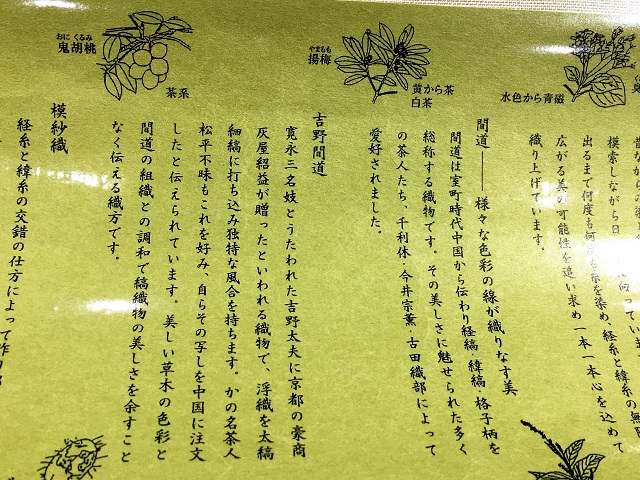 水色から青磁
黄から茶
白茶
やまもも
揚梅
茶系
おに くるみ
鬼胡桃
模索しながら日
出るまで何度も何度も糸を染め、経糸と緯糸の無限
広がる美の可能性を追い求め一本一本心を込めて
織り上げています。
間道――様々な色彩の線が織りなす美
間道は室町時代中国から伝わり経縞・緯縞・格子柄を
総称する織物です。その美しさに魅せられた多く
の茶人たち、千利休・今井宗薫・古田織部によって
愛好されました。
吉野間道
寛永三名妓とうたわれた吉野太夫に京都の豪商
灰屋紹益が贈ったといわれる織物で、浮織を太縞
細縞に打ち込み独特な風合を持ちます。かの名茶人
松平不昧もこれを好み、自らその写しを中国に注文
したと伝えられています。美しい草木の色彩と
間道の組織との調和で縞織物の美しさを余すこと
なく伝える織方です。
模紗織
経糸と緯糸の交錯の仕方によって作